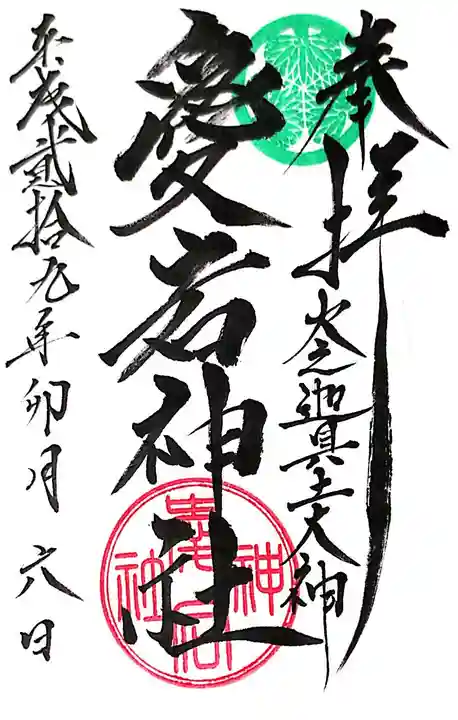 奉拝
火之迦具土大神
愛宕神社
愛宕神社
平成貳拾九年卯月六日